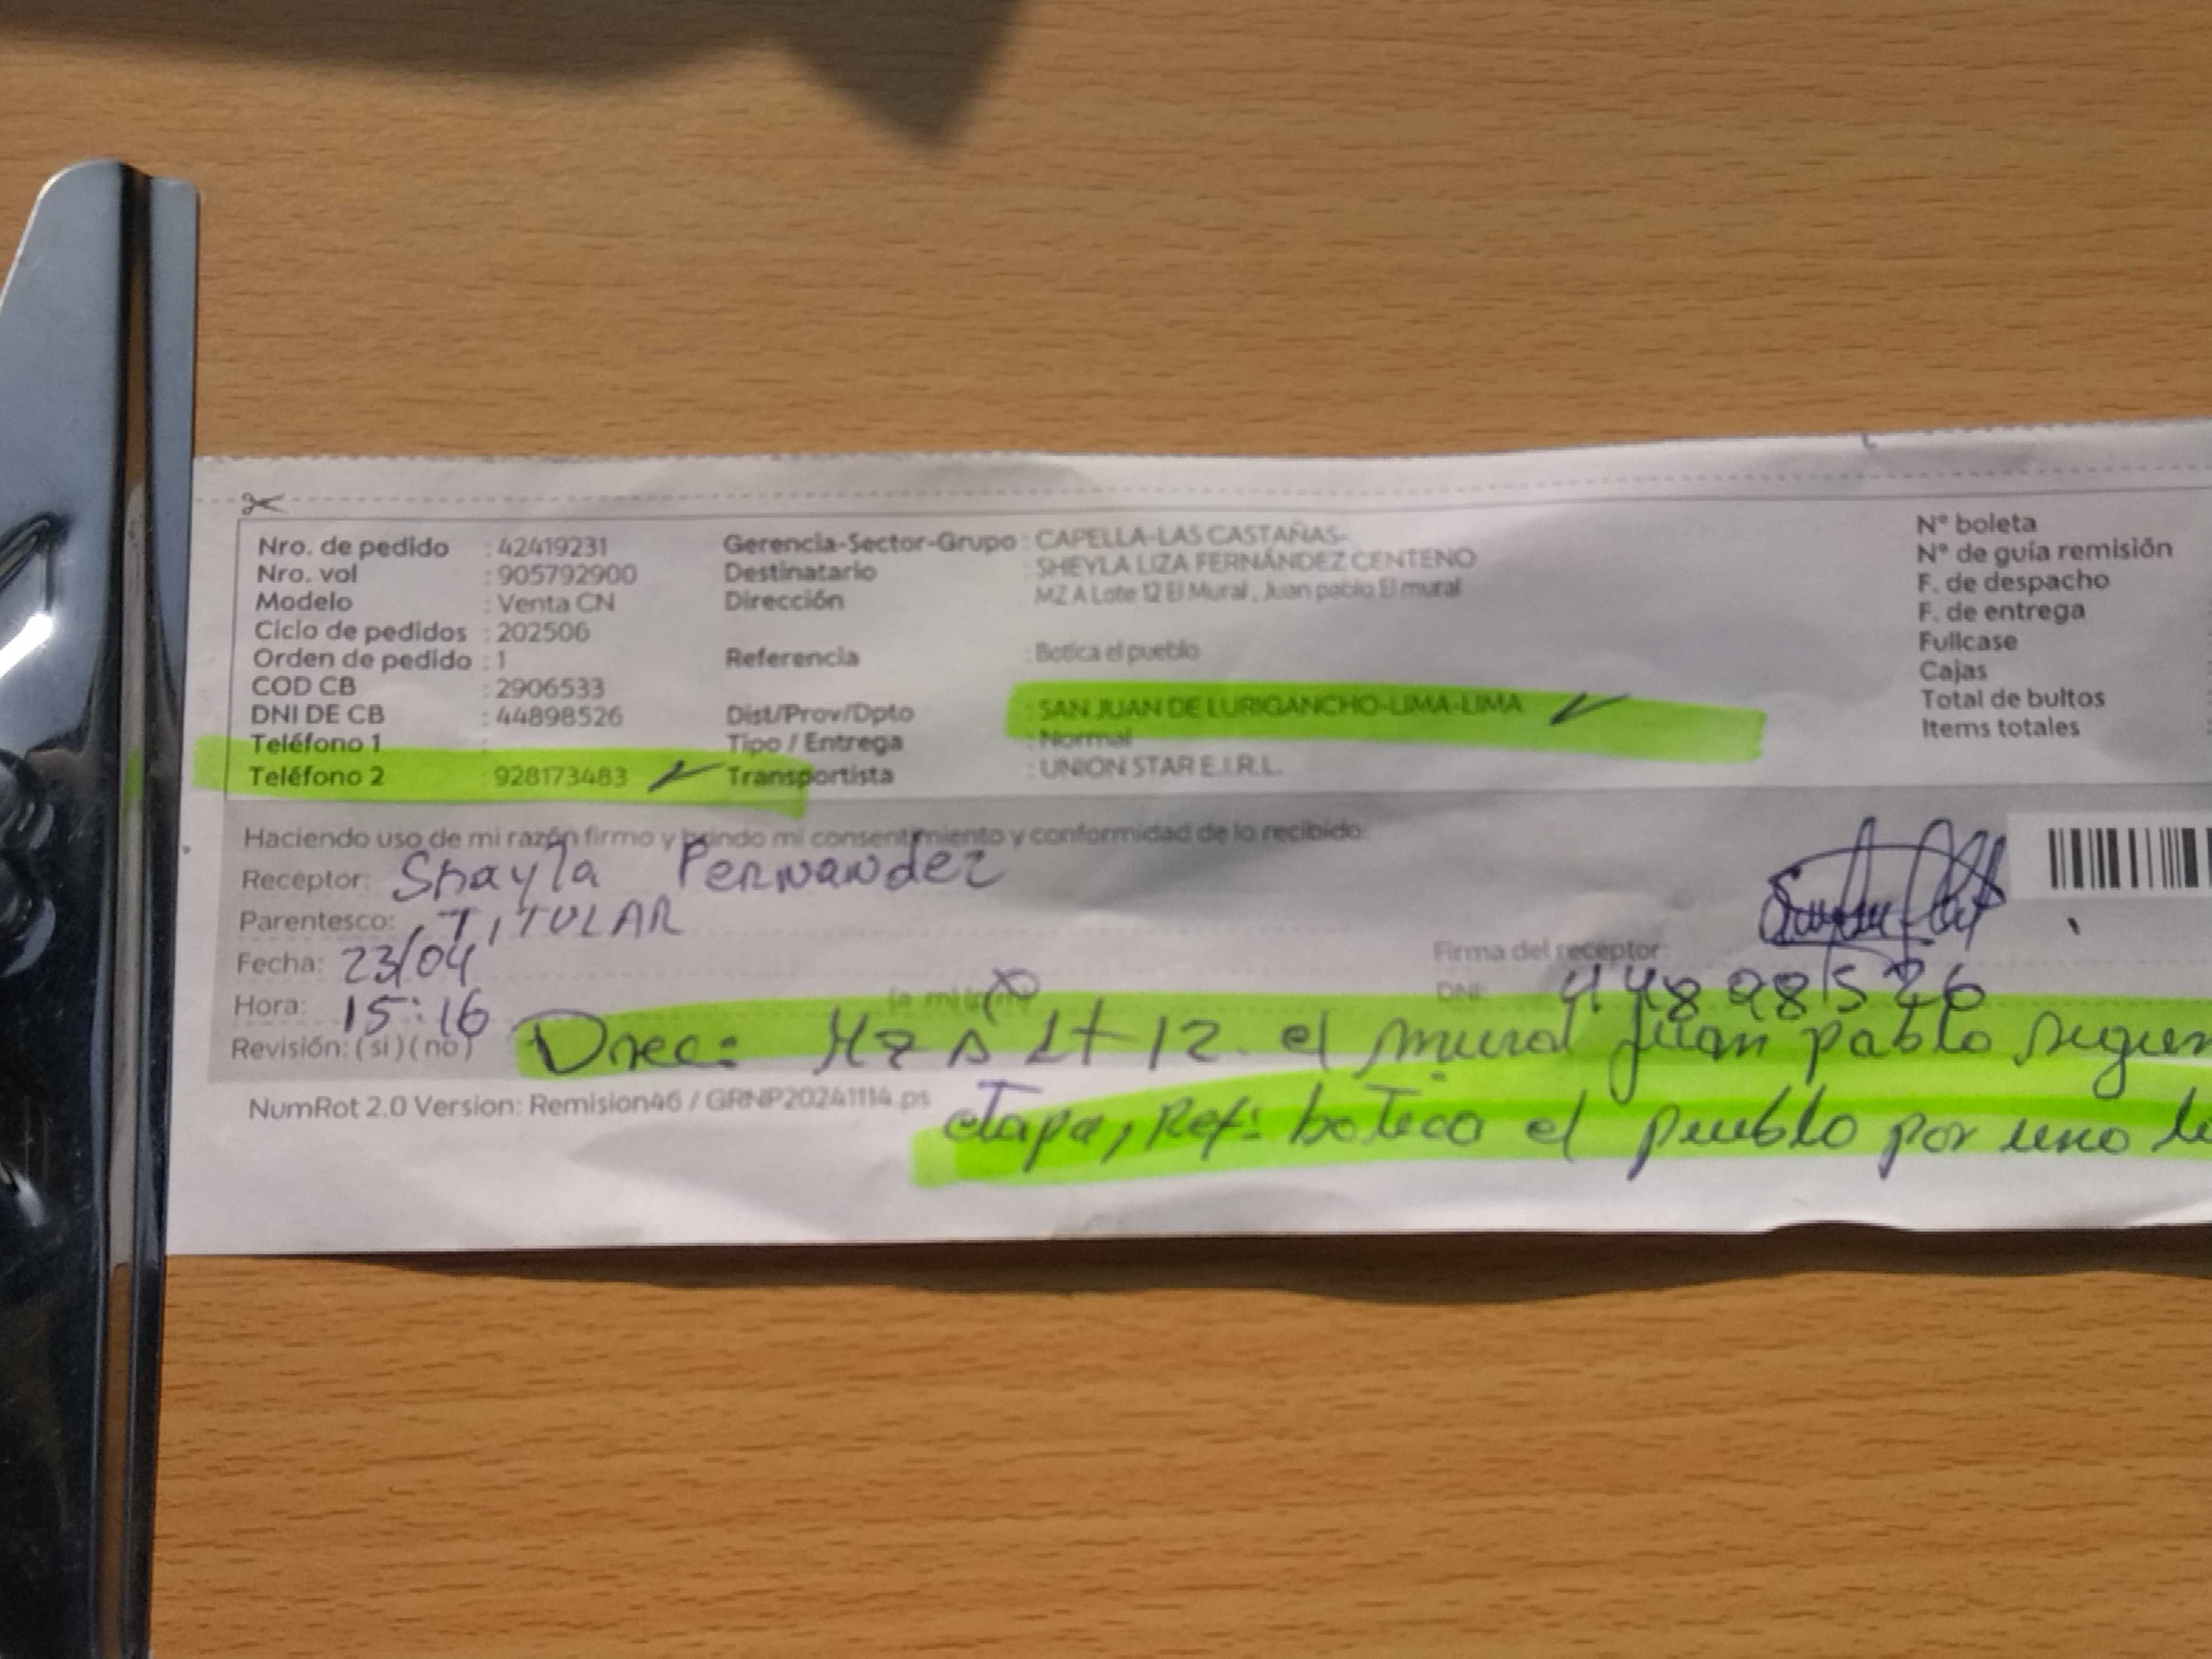 Nro. de pedido : 42419231
Nro. vol : 905792900
Modelo : Venta CN
Ciclo de pedidos : 202506
Orden de pedido : 1
COD CB : 2906533
DNI DE CB : 44898526
Teléfono 1 :
Teléfono 2 : 928173483
Gerencia-Sector-Grupo : CAPELLA-LAS CASTAÑAS-
Destinatario : SHEYLA LIZA FERNÁNDEZ CENTENO
Dirección : MZ A Lote 12 El Mural, Juan pablo El mural
Referencia : Botica el pueblo
Dist/Prov/Dpto : SAN JUAN DE LURIGANCHO-LIMA-LIMA
Tipo / Entrega : Normal
Transportista : UNION STAR E.I.R.L.
N° boleta
N° de guía remisión
F. de despacho
F. de entrega
Fullcase
Cajas
Total de bultos
Items totales
Haciendo uso de mi razón firmo y brindo mi consentimiento y conformidad de lo recibido:
Receptor: Shayla Fernandez
Parentesco: TITULAR
Fecha: 23/04
Firma del receptor:
Hora: 15:16 (a m) (p m)
DNI: 44898526
Revisión: (si) (no)
Direc: Mz A Lt 12. el mural Juan pablo segun
etapa, Ref: botica el pueblo por uno
NumRot 2.0 Version: Remision46 / GRNP20241114.ps